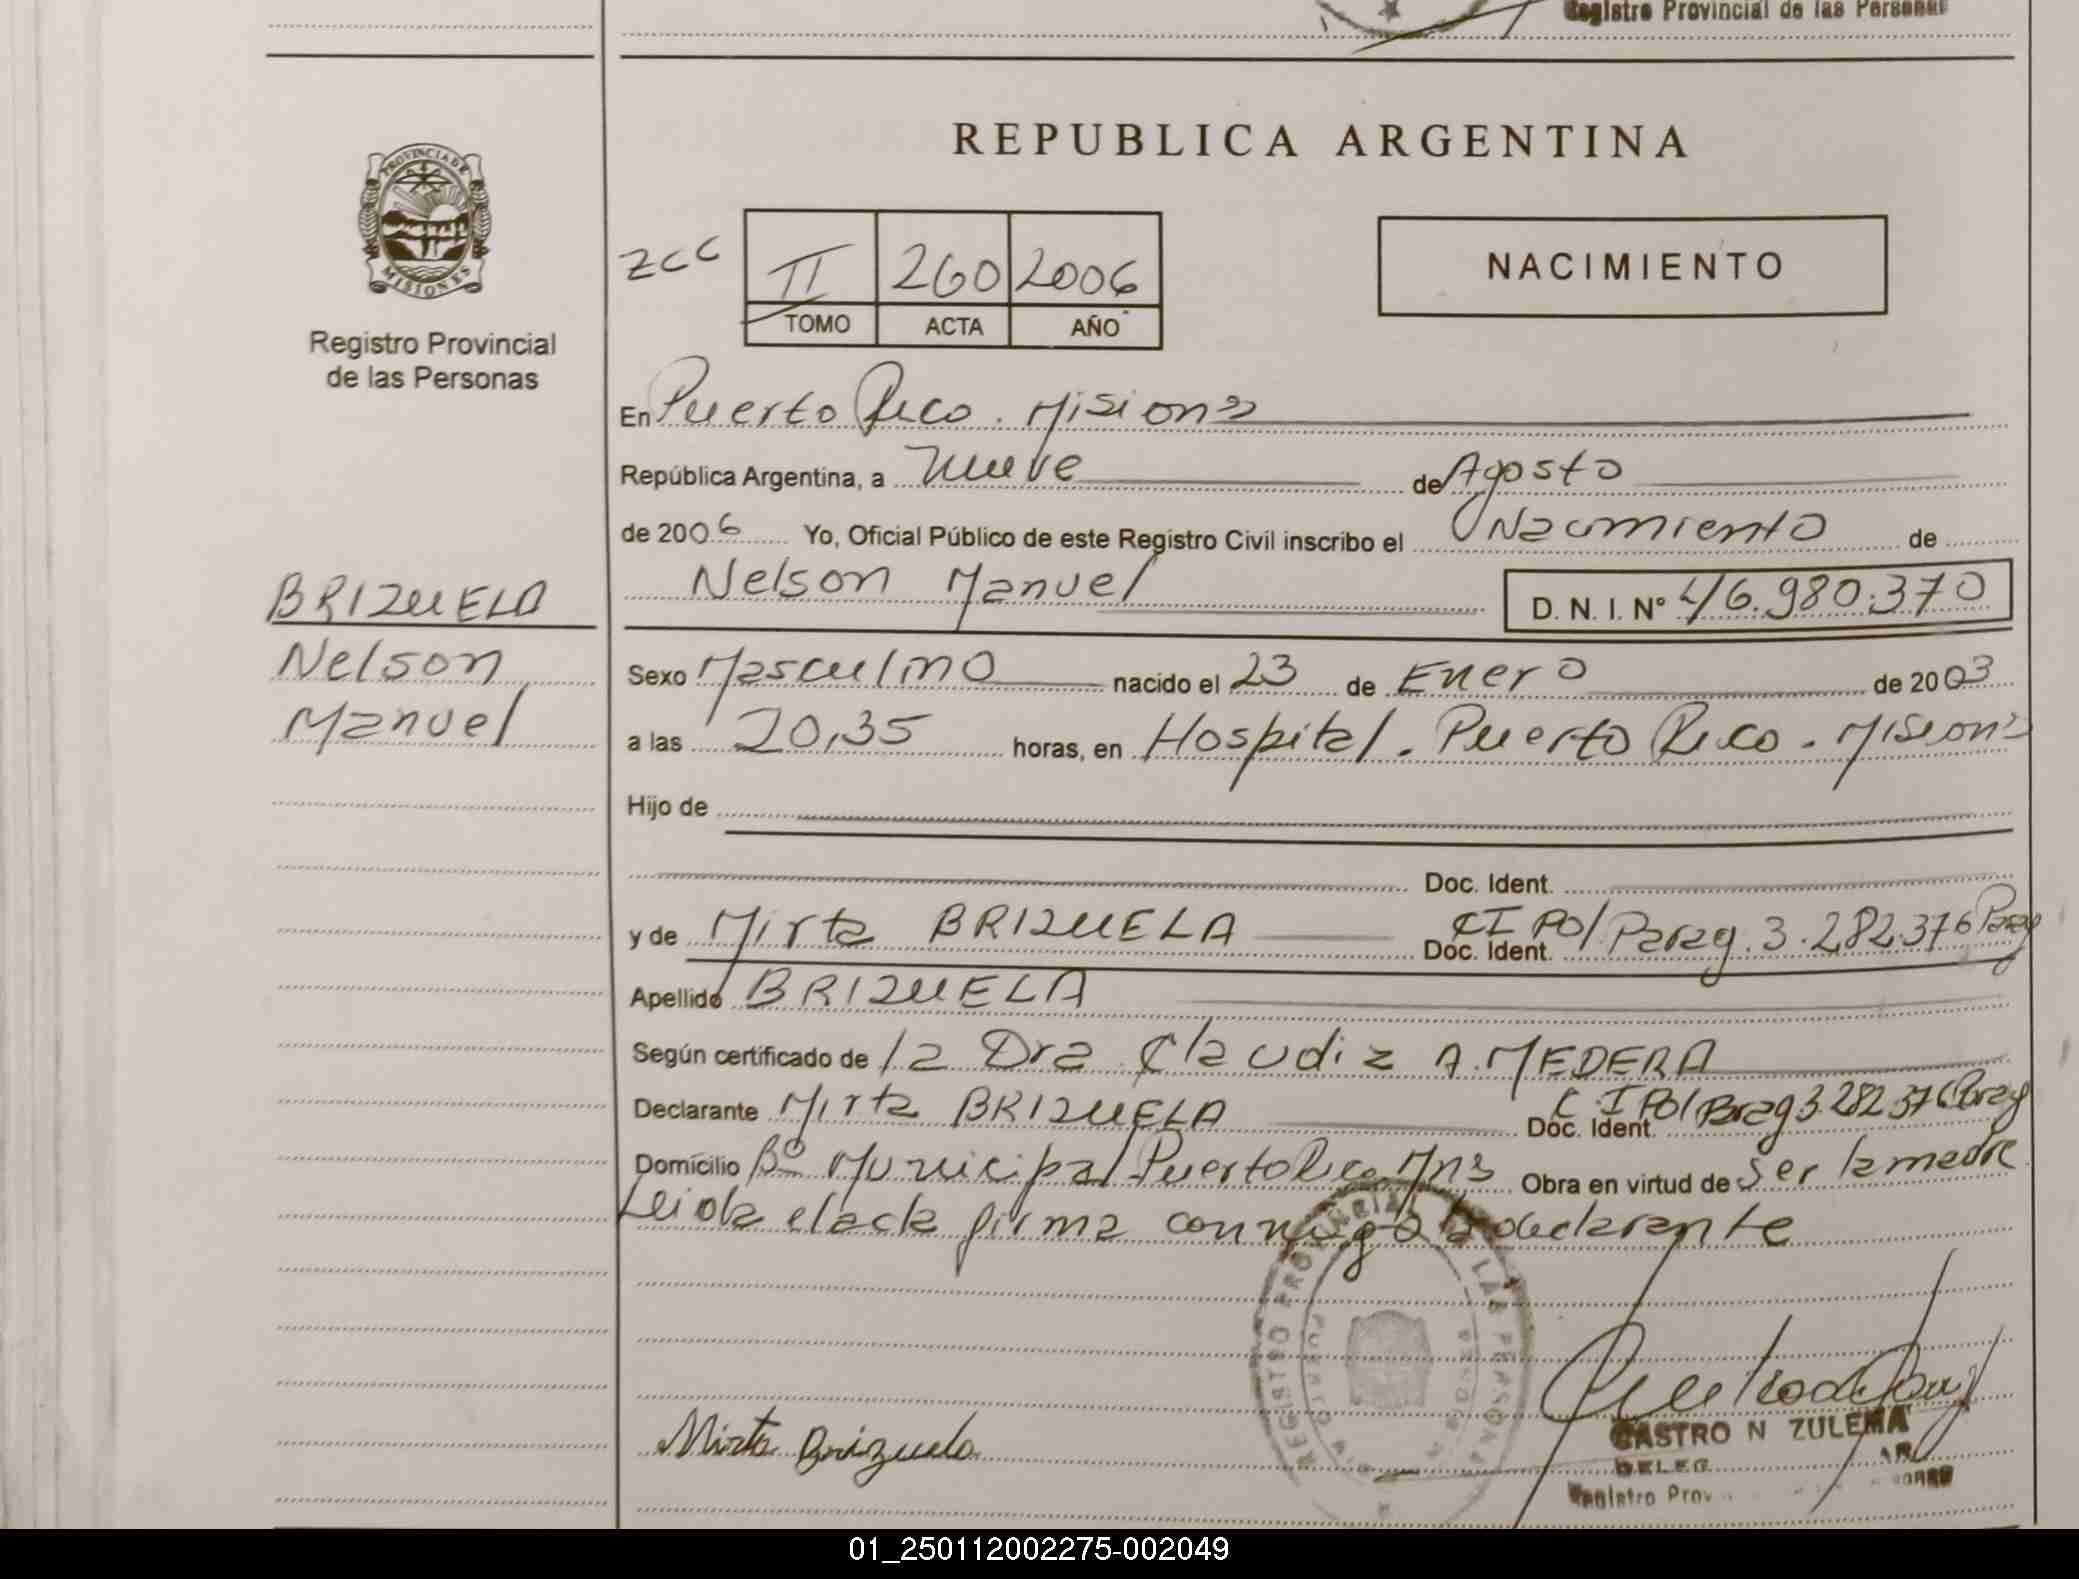 Registro Provincial de las Personas
REPUBLICA ARGENTINA
PROVINCIA DE
MISIONES
Registro Provincial
de las Personas
ZCC
II 260 2006
TOMO ACTA AÑO
NACIMIENTO
En Puerto Rico. Misiones
República Argentina, a Nueve de Agosto
de 2006 Yo, Oficial Público de este Registro Civil inscribo el Nacimiento de
Nelson Manuel D. N. I. Nº 46.980.370
BRIZUELA
Nelson
Manuel
Sexo Masculino nacido el 23 de Enero de 2003
a las 20,35 horas, en Hospital. Puerto Rico. Misiones
Hijo de
Doc. Ident.
y de Mirta BRIZUELA Doc. Ident. CI Pol. Parag. 3.282.376 Parag
Apellido BRIZUELA
Según certificado de la Dra. Claudia A. MEDERA
Declarante Mirta BRIZUELA Doc. Ident. C I Pol Parag 3.282.376 Parag
Domicilio Bº Municipal Puerto Rico Mns Obra en virtud de ser la madre
Leida el acta firma conmigo la declarante
REGISTRO PROVINCIAL LAS PERSONAS
PUERTO
Mirta Brizuela
CASTRO N ZULEMA
DELEG
Registro Prov
01_250112002275-002049